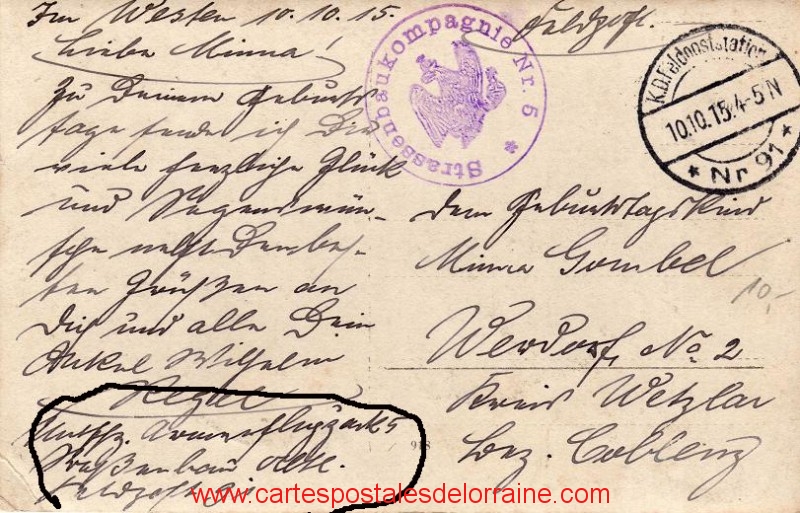 Im Westen 10.10.15.
Liebe Minna!
Zu Deinem Geburts
tage sende ich Dir
viele herzliche Glück
und Segenswün-
sche nebst den bes-
ten Grüßen an
Dich und alle Dein
Onkel Wilhelm
Armeeflugpark 5
Straßenbau
Feldpost 91
Feldpost.
Strassenbaukompagnie Nr. 5 *
K.D. Feldpoststation
10.10.15. 4-5 N
* Nr 91 *
Dem Geburtstagskind
Minna Gombel
Werdorf, No 2
Kreis Wetzlar
Bez. Coblenz
10,-
www.cartespostalesdelorraine.com